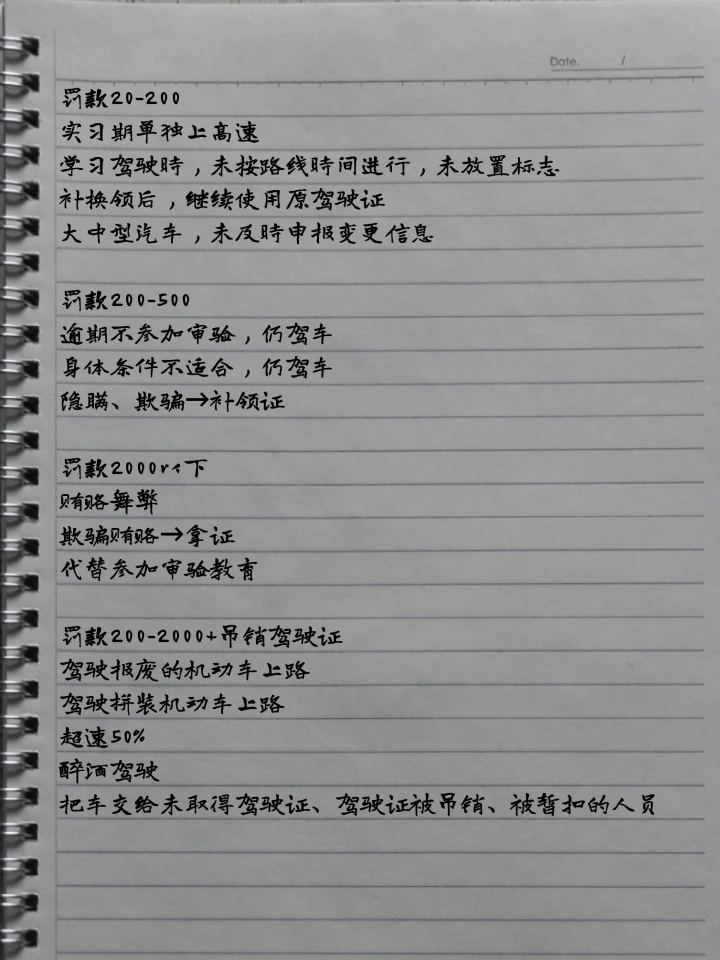 Date.      /
罚款20-200
实习期单独上高速
学习驾驶時，未按路线時间进行，未放置标志
补换领后，继续使用原驾驶证
大中型汽车，未及時申报变更信息
罚款200-500
逾期不参加审验，仍驾车
身体条件不适合，仍驾车
隐瞒、欺骗→补领证
罚款2000以下
贿赂舞弊
欺骗贿赂→拿证
代替参加审验教育
罚款200-2000+吊销驾驶证
驾驶报废的机动车上路
驾驶拼装机动车上路
超速50%
醉酒驾驶
把车交给未取得驾驶证、驾驶证被吊销、被暂扣的人员